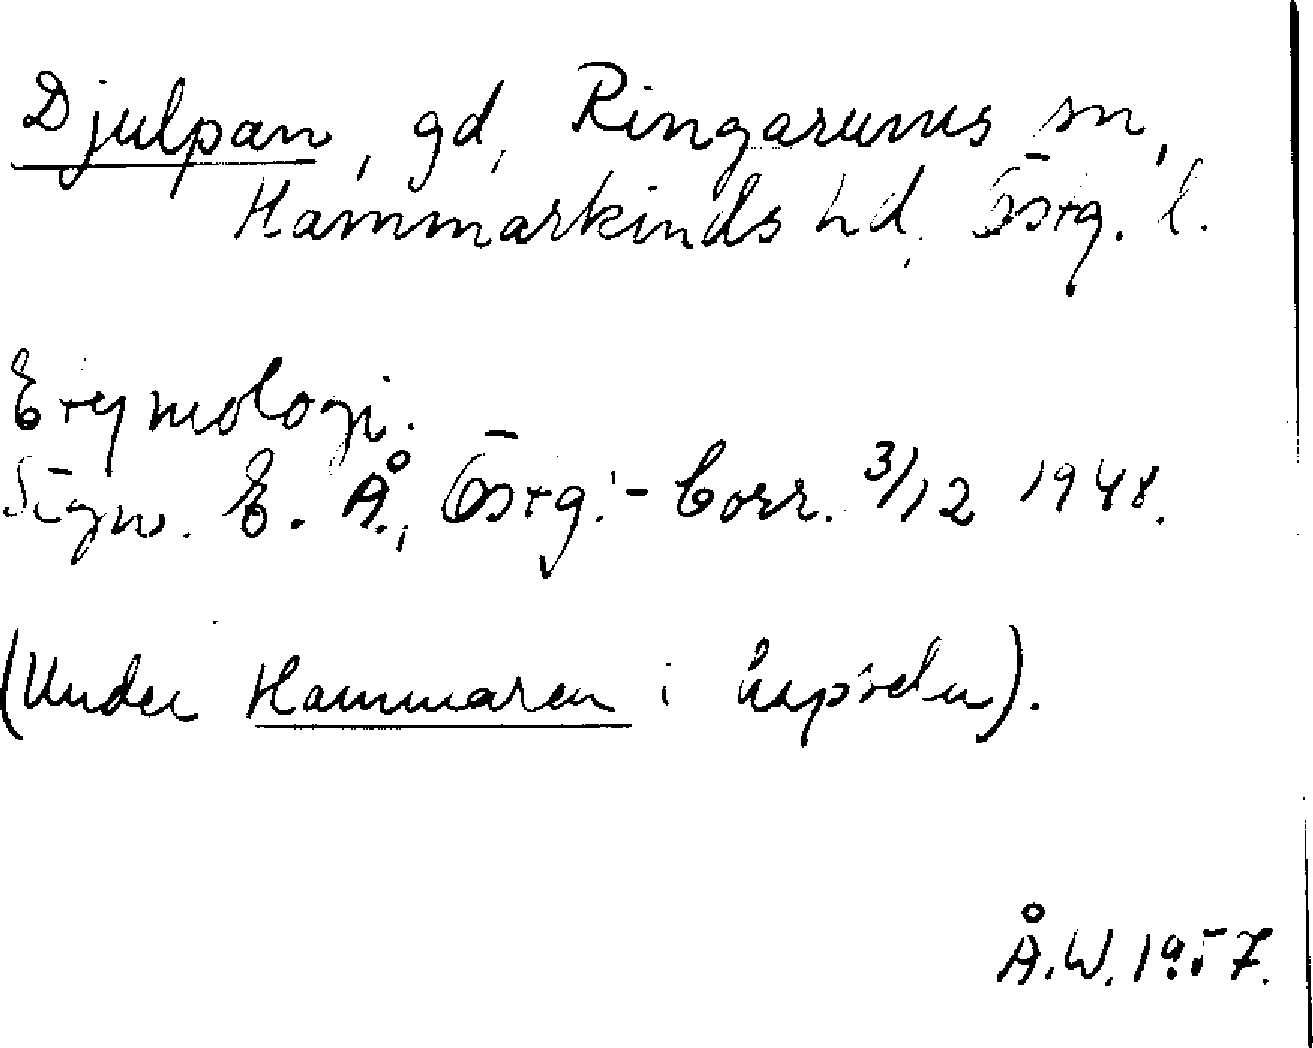 Djulpan, gd, Ringarums sn,
Hammarkinds hd, Östg. l.
Etymologi.
Sign. E. Å., Östg.-Corr. 3/12 1948.
(Under Hammaren i kapseln).
Å.W. 1957.